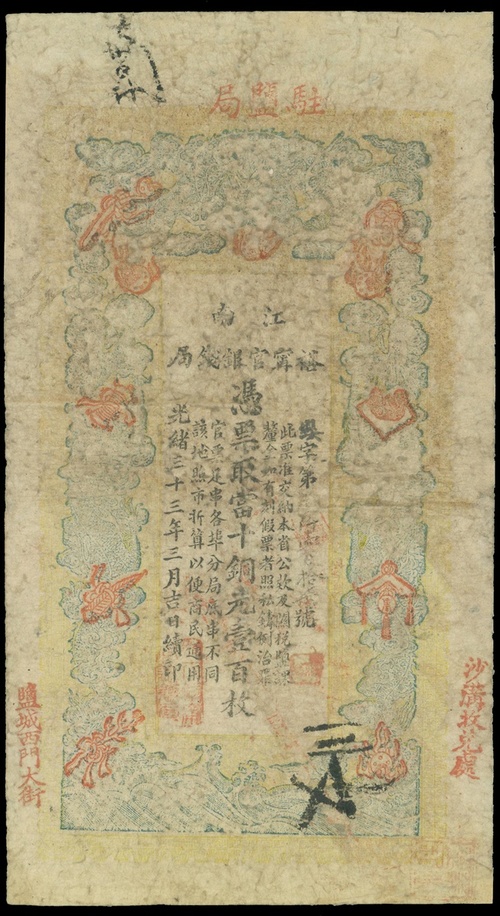 駐鹽局
江南
裕甯官銀錢局
字第 號
此票准交納本省公款及關稅鹽課
釐金如有 假票者照私鑄例治罪
憑票取當十銅元壹百枚
官票足串各埠分局底串不同
該地照市折算以便商民通用
光緒三十三年三月吉日續印
沙溝 兌處
鹽城西門大街